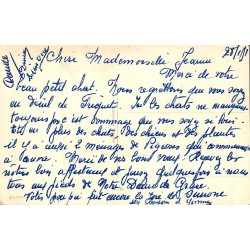 28/1/81
Chère Mademoiselle Jeanne
Merci de votre
beau petit chat. Nous regrettons que vous soyez
au deuil de Friquet. Ici les chats ne manquent
toujours pas c'est dommage que vous soyez si loin
en plus des chats, des chiens et des plantes
il y a aussi 2 ménages de Pigeons qui commencent
à couver. Merci de vos bons vœux. Recevez les
nôtres bien affectueux et pensez quelquefois à nous
tous aux pieds de Notre Dame de Grâce.
Votre pensée fait encore la joie de Simone